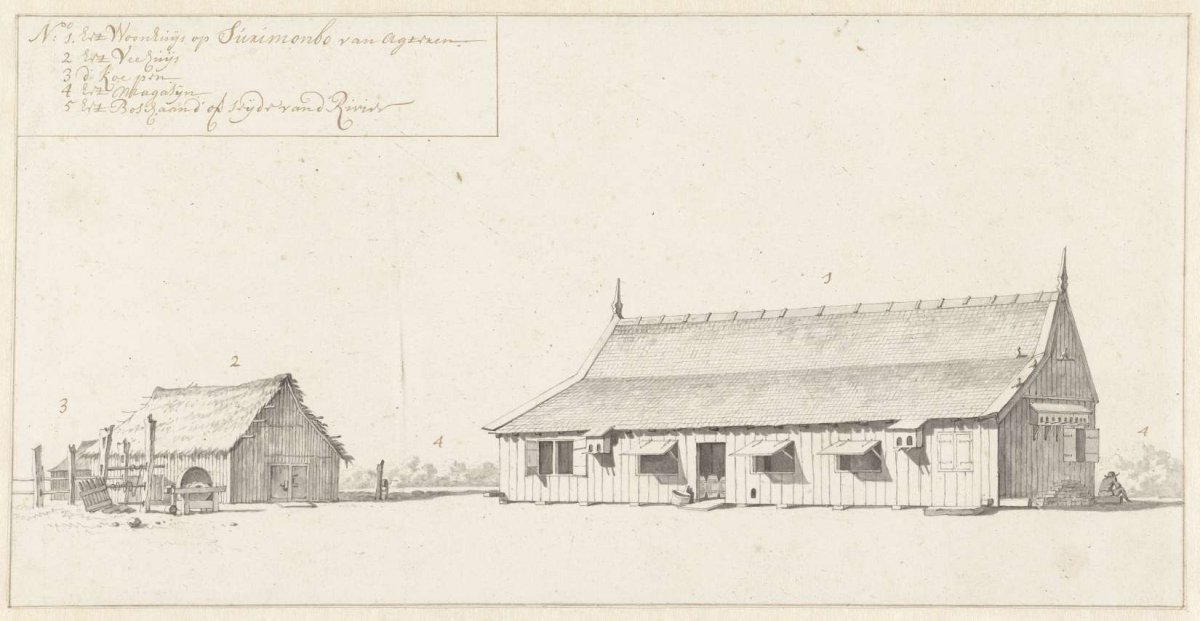 N:o 1. het Woonhuijs op Surimonbo van Agteren
2 het Veehuijs
3 d' Koe pen
4 het Magasijn
5 het Boschaand of seijde vand Rivier
1
2
3
4
4